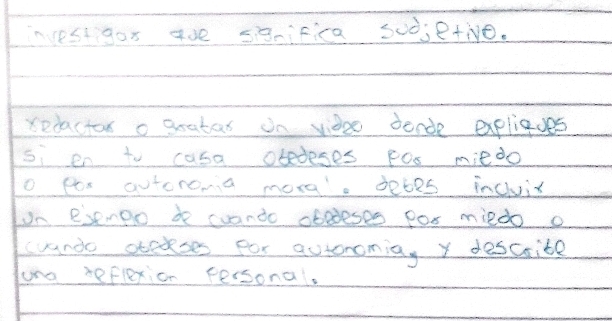 investigar que significa sudjetivo.
redactar o grabar un video donde expliques
si en tu casa obedeses por miedo
o por autonomia moral. debes incluir
un ejemplo de cuando obedeses por miedo o
cuando obedeses por autonomia, y describe
una reflexion personal.